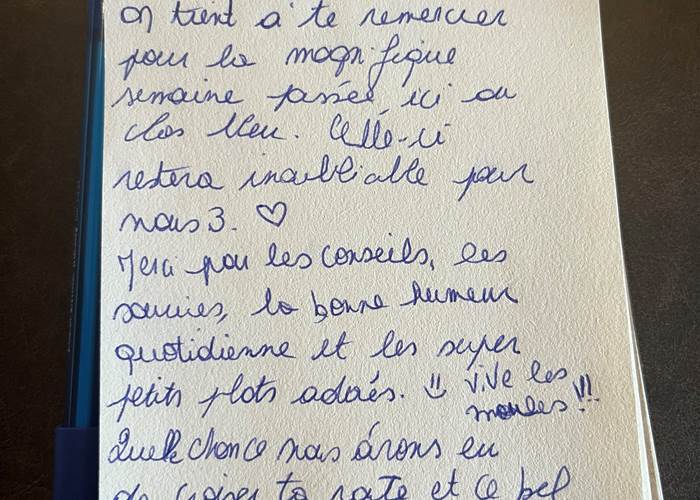 On tient à te remercier
pour la magnifique
semaine passée ici au
clos bleu. Celle-ci
restera inoubliable pour
nous 3. ♡
Merci pour les conseils, les
sourires, la bonne humeur
quotidienne et les super
petits plats adorés. Vive les
moules!!!
Quelle chance nous avons eu
de croiser ta route et ce bel